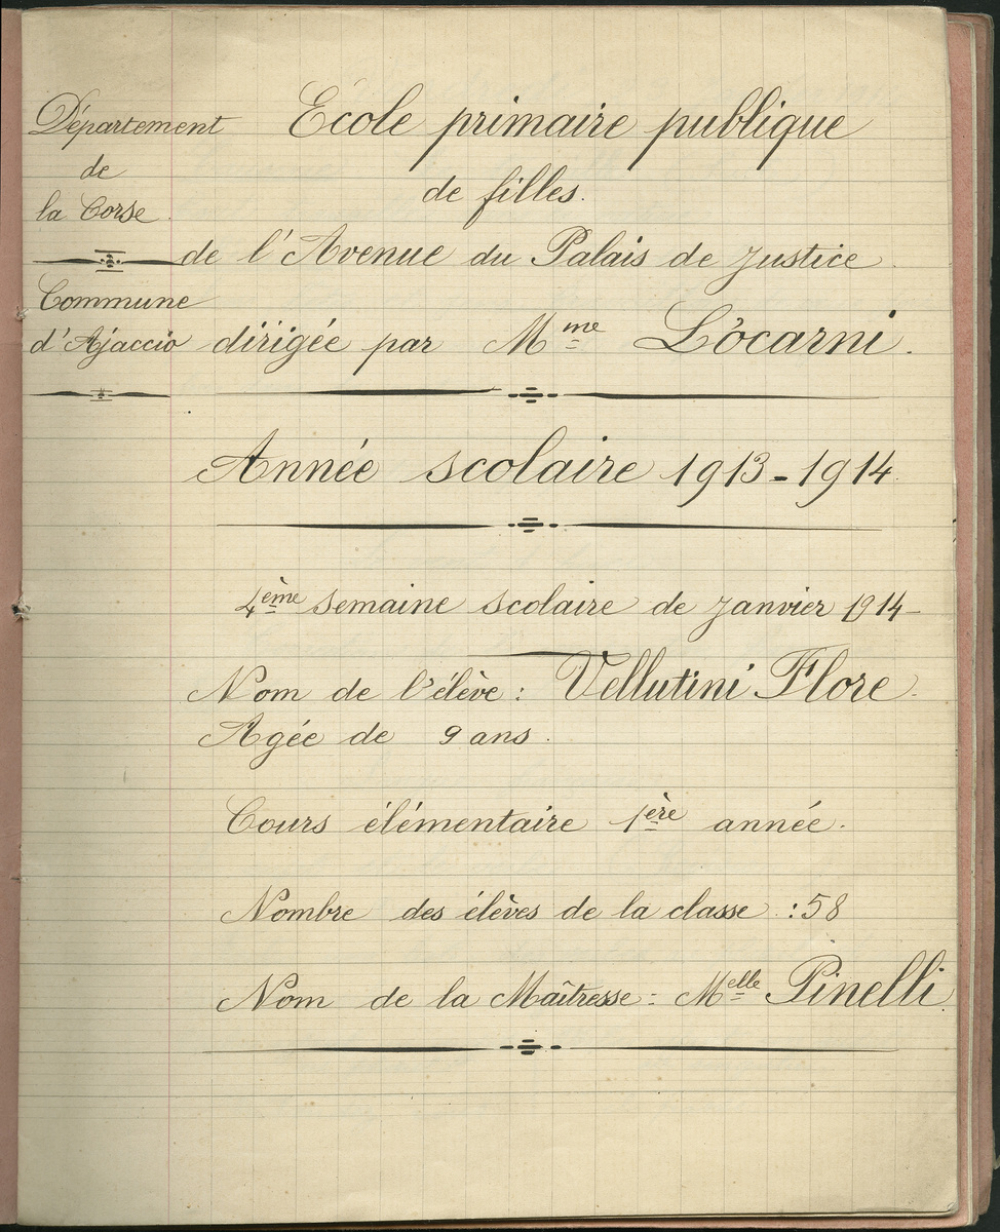 Département
de
la Corse
Commune
d'Ajaccio
École primaire publique
de filles.
de l'Avenue du Palais de Justice
dirigée par Mme Lòcarni.
Année scolaire 1913-1914
4ème semaine scolaire de Janvier 1914-
Nom de l'élève : Vellutini Flore.
Agée de 9 ans.
Cours élémentaire 1ère année.
Nombre des élèves de la classe : 58
Nom de la Maîtresse : Melle Pinelli